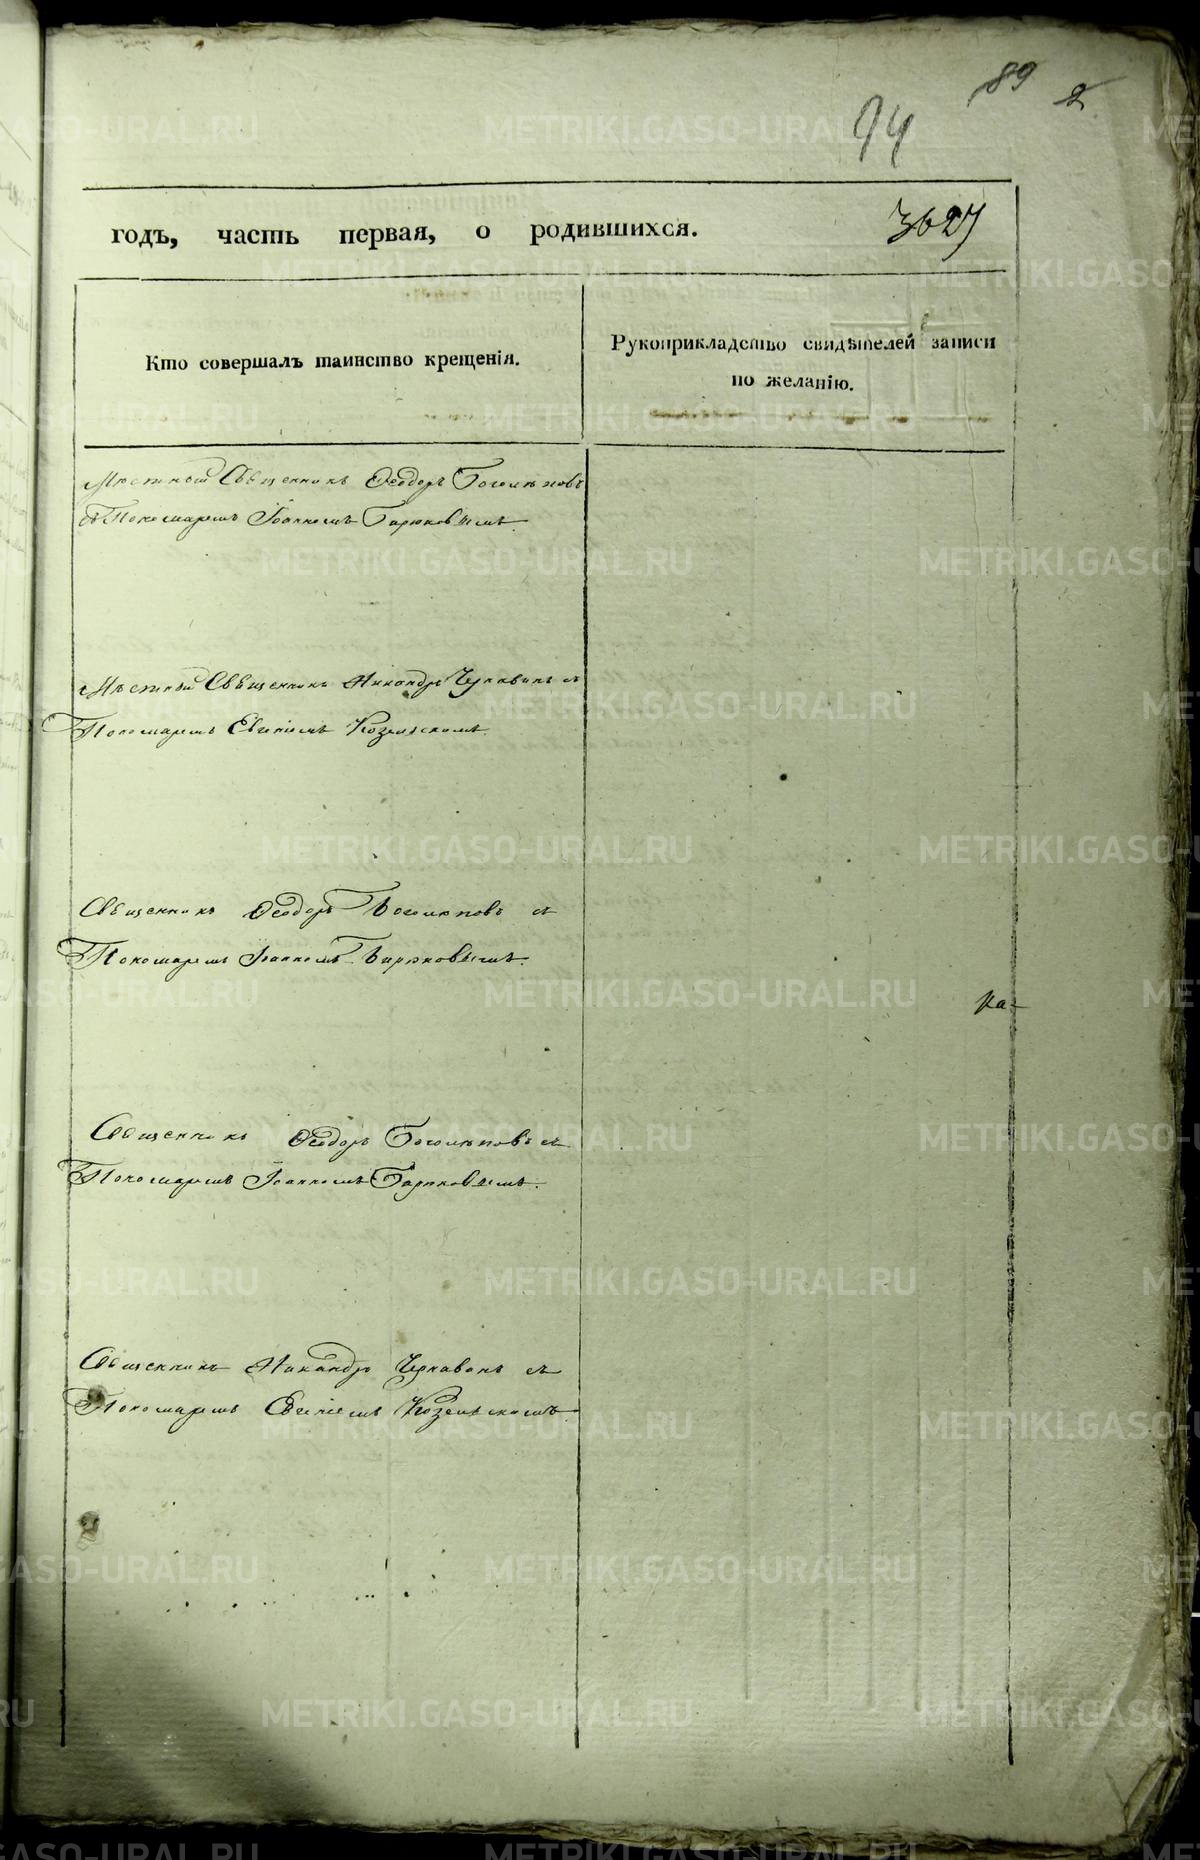 89 2
94
годъ, часть первая, о родившихся. 3627
Кто совершалъ таинство крещенія.
Рукоприкладство свидѣтелей записи
по желанію.
Мѣстный Священникъ Ѳеодоръ Боголѣповъ
съ Пономаремъ Іоанномъ Бирюковымъ.
Мѣстный Священникъ Никандръ Чернавинъ съ
Пономаремъ Евгеніемъ Козельскимъ.
Священникъ Ѳеодоръ Боголѣповъ съ
Пономаремъ Іоанномъ Бирюковымъ.
Ка-
Священникъ Ѳеодоръ Боголѣповъ съ
Пономаремъ Іоанномъ Бирюковымъ.
Священникъ Никандръ Чернавинъ съ
Пономаремъ Евгеніемъ Козельскимъ.
METRIKI.GASO-URAL.RU